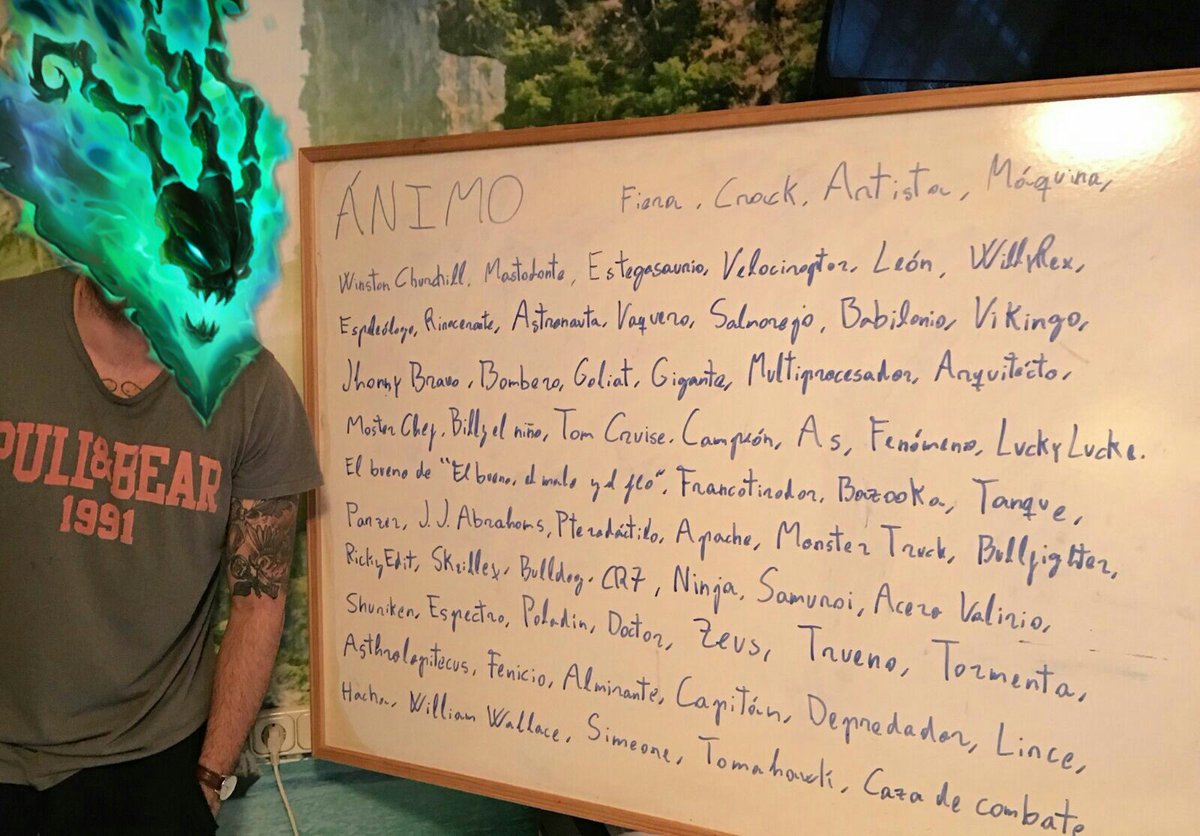 PULL&BEAR
1991
ÁNIMO Fiera, Crack, Artista, Máquina,
Winston Churchill, Mastodonte, Estegasaurio, Velociraptor, León, WillyRex,
Espeleólogo, Rinoceronte, Astronauta, Vaquero, Salmorejo, Babilonio, Vikingo,
Jhonny Bravo, Bombero, Goliat, Gigante, Multiprocesador, Arquitecto,
Master Chef, Billy el niño, Tom Cruise. Campeón, As, Fenómeno, Lucky Lucke.
El bueno de "El bueno, el malo y el feo", Francotirador, Bazooka, Tanque,
Panzer, J.J. Abrahams, Pterodáctilo, Apache, Monster Truck, Bullfighter,
RickyEdit, Skrillex, Bulldog. CR7, Ninja, Samurai, Acero Valirio,
Shuriken, Espectro, Paladin, Doctor, Zeus, Trueno, Tormenta,
Asthrolopitecus, Fenicio, Almirante, Capitán, Depredador, Lince,
Hacha, William Wallace, Simeone, Tomahawk, Caza de combate